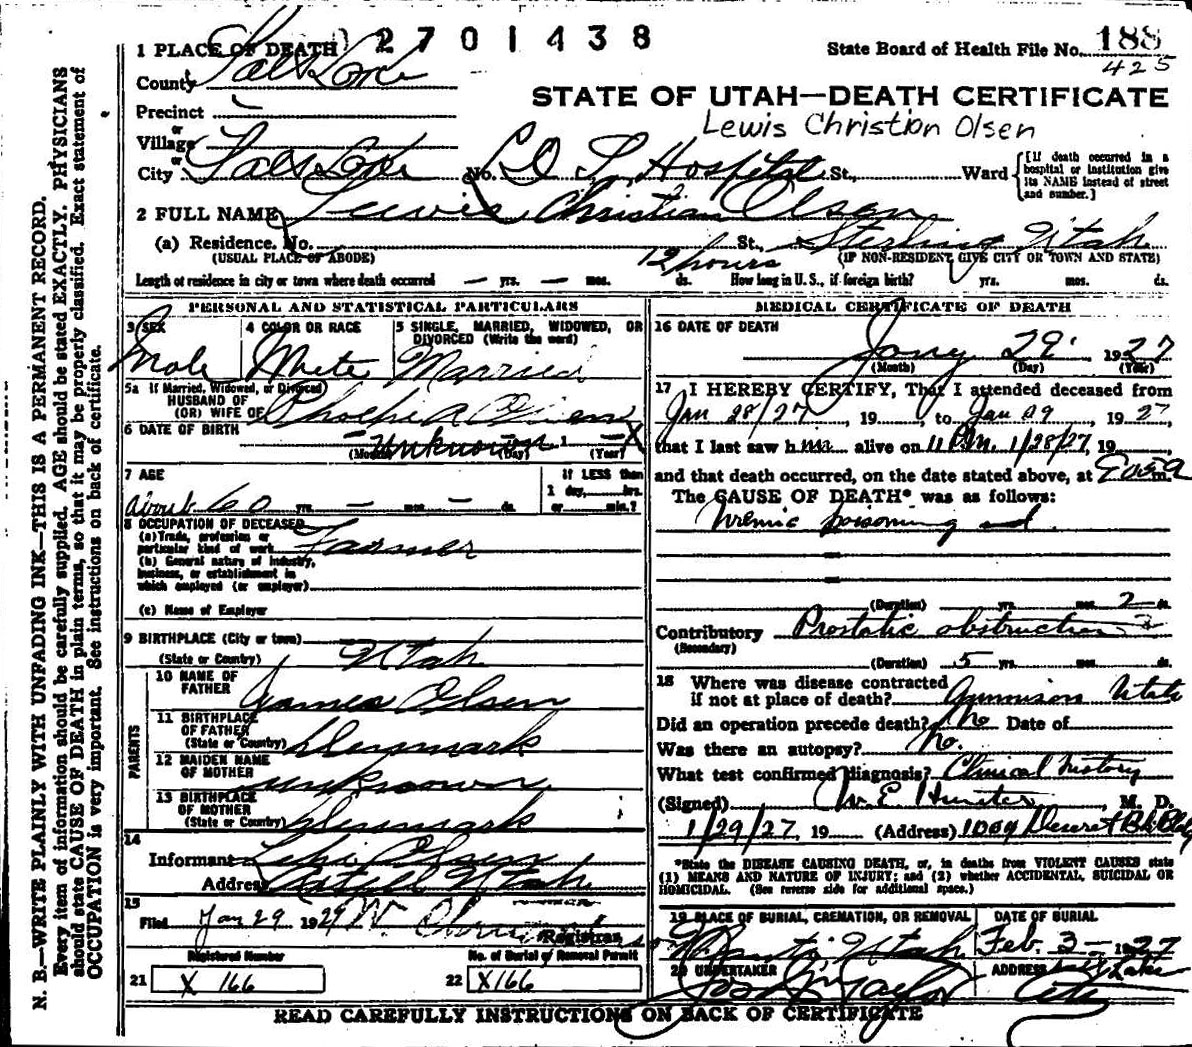 2701438
1 PLACE OF DEATH
State Board of Health File No. 188
425
County Salt Lake
STATE OF UTAH—DEATH CERTIFICATE
Precinct
Lewis Christian Olsen
or
Village
or
City Salt Lake No. L D S Hospital St., Ward
[If death occurred in a hospital or institution give its NAME instead of street and number.]
2 FULL NAME Lewis Christian Olsen
(a) Residence. No. St., Sterling Utah
(USUAL PLACE OF ABODE) (IF NON-RESIDENT GIVE CITY OR TOWN AND STATE)
12 hours
Length of residence in city or town where death occurred — yrs. — mos. ds. How long in U. S., if foreign birth? yrs. mos. ds.
PERSONAL AND STATISTICAL PARTICULARS
3 SEX
Male
4 COLOR OR RACE
White
5 SINGLE, MARRIED, WIDOWED, OR DIVORCED (Write the word)
Married
5a If Married, Widowed, or Divorced
HUSBAND OF
(OR) WIFE OF
6 DATE OF BIRTH
Unknown 1 X
(Month) (Day) (Year)
7 AGE
About 60 yrs. — mos. — ds.
If LESS than
1 day, hrs.
or min.?
8 OCCUPATION OF DECEASED
(a) Trade, profession or
particular kind of work Farmer
(b) General nature of industry,
business, or establishment in
which employed (or employer)
(c) Name of Employer
9 BIRTHPLACE (City or town)
(State or Country) Utah
PARENTS
10 NAME OF
FATHER James Olsen
11 BIRTHPLACE
OF FATHER
(State or Country) Denmark
12 MAIDEN NAME
OF MOTHER unknown
13 BIRTHPLACE
OF MOTHER
(State or Country) Denmark
14
Informant
Address Utah
15
Filed Jan 29 192 W.
Registrar
Registered Number
21 X 166
No. of Burial or Removal Permit
22 X166
MEDICAL CERTIFICATE OF DEATH
16 DATE OF DEATH
Jany 29 1927
(Month) (Day) (Year)
17 I HEREBY CERTIFY, That I attended deceased from
Jan 28/27, 19 , to Jan 29 1927,
that I last saw him alive on 11 P.M. 1/28/27, 19
and that death occurred, on the date stated above, at m.
The CAUSE OF DEATH* was as follows:
Uremic poisoning and
(Duration) yrs. mos. 2 ds.
Contributory Prostatic obstruction
(Secondary)
(Duration) 5 yrs. mos. ds.
18 Where was disease contracted
if not at place of death? Gunnison Utah
Did an operation precede death? No Date of
Was there an autopsy? No.
What test confirmed diagnosis? Clinical history
(Signed) Hunter, M. D.
1/29/27, 19 (Address) 1009 Deseret Bk Bldg
*State the DISEASE CAUSING DEATH, or, in deaths from VIOLENT CAUSES state
(1) MEANS AND NATURE OF INJURY; and (2) whether ACCIDENTAL, SUICIDAL OR
HOMICIDAL. (See reverse side for additional space.)
19 PLACE OF BURIAL, CREMATION, OR REMOVAL
Manti, Utah
DATE OF BURIAL
Feb. 3 — 1927
20 UNDERTAKER
Taylor
ADDRESS
Salt Lake
City
READ CAREFULLY INSTRUCTIONS ON BACK OF CERTIFICATE
N. B.—WRITE PLAINLY WITH UNFADING INK—THIS IS A PERMANENT RECORD.
Every item of information should be carefully supplied. AGE should be stated EXACTLY. PHYSICIANS
should state CAUSE OF DEATH in plain terms, so that it may be properly classified. Exact statement of
OCCUPATION is very important. See instructions on back of certificate.